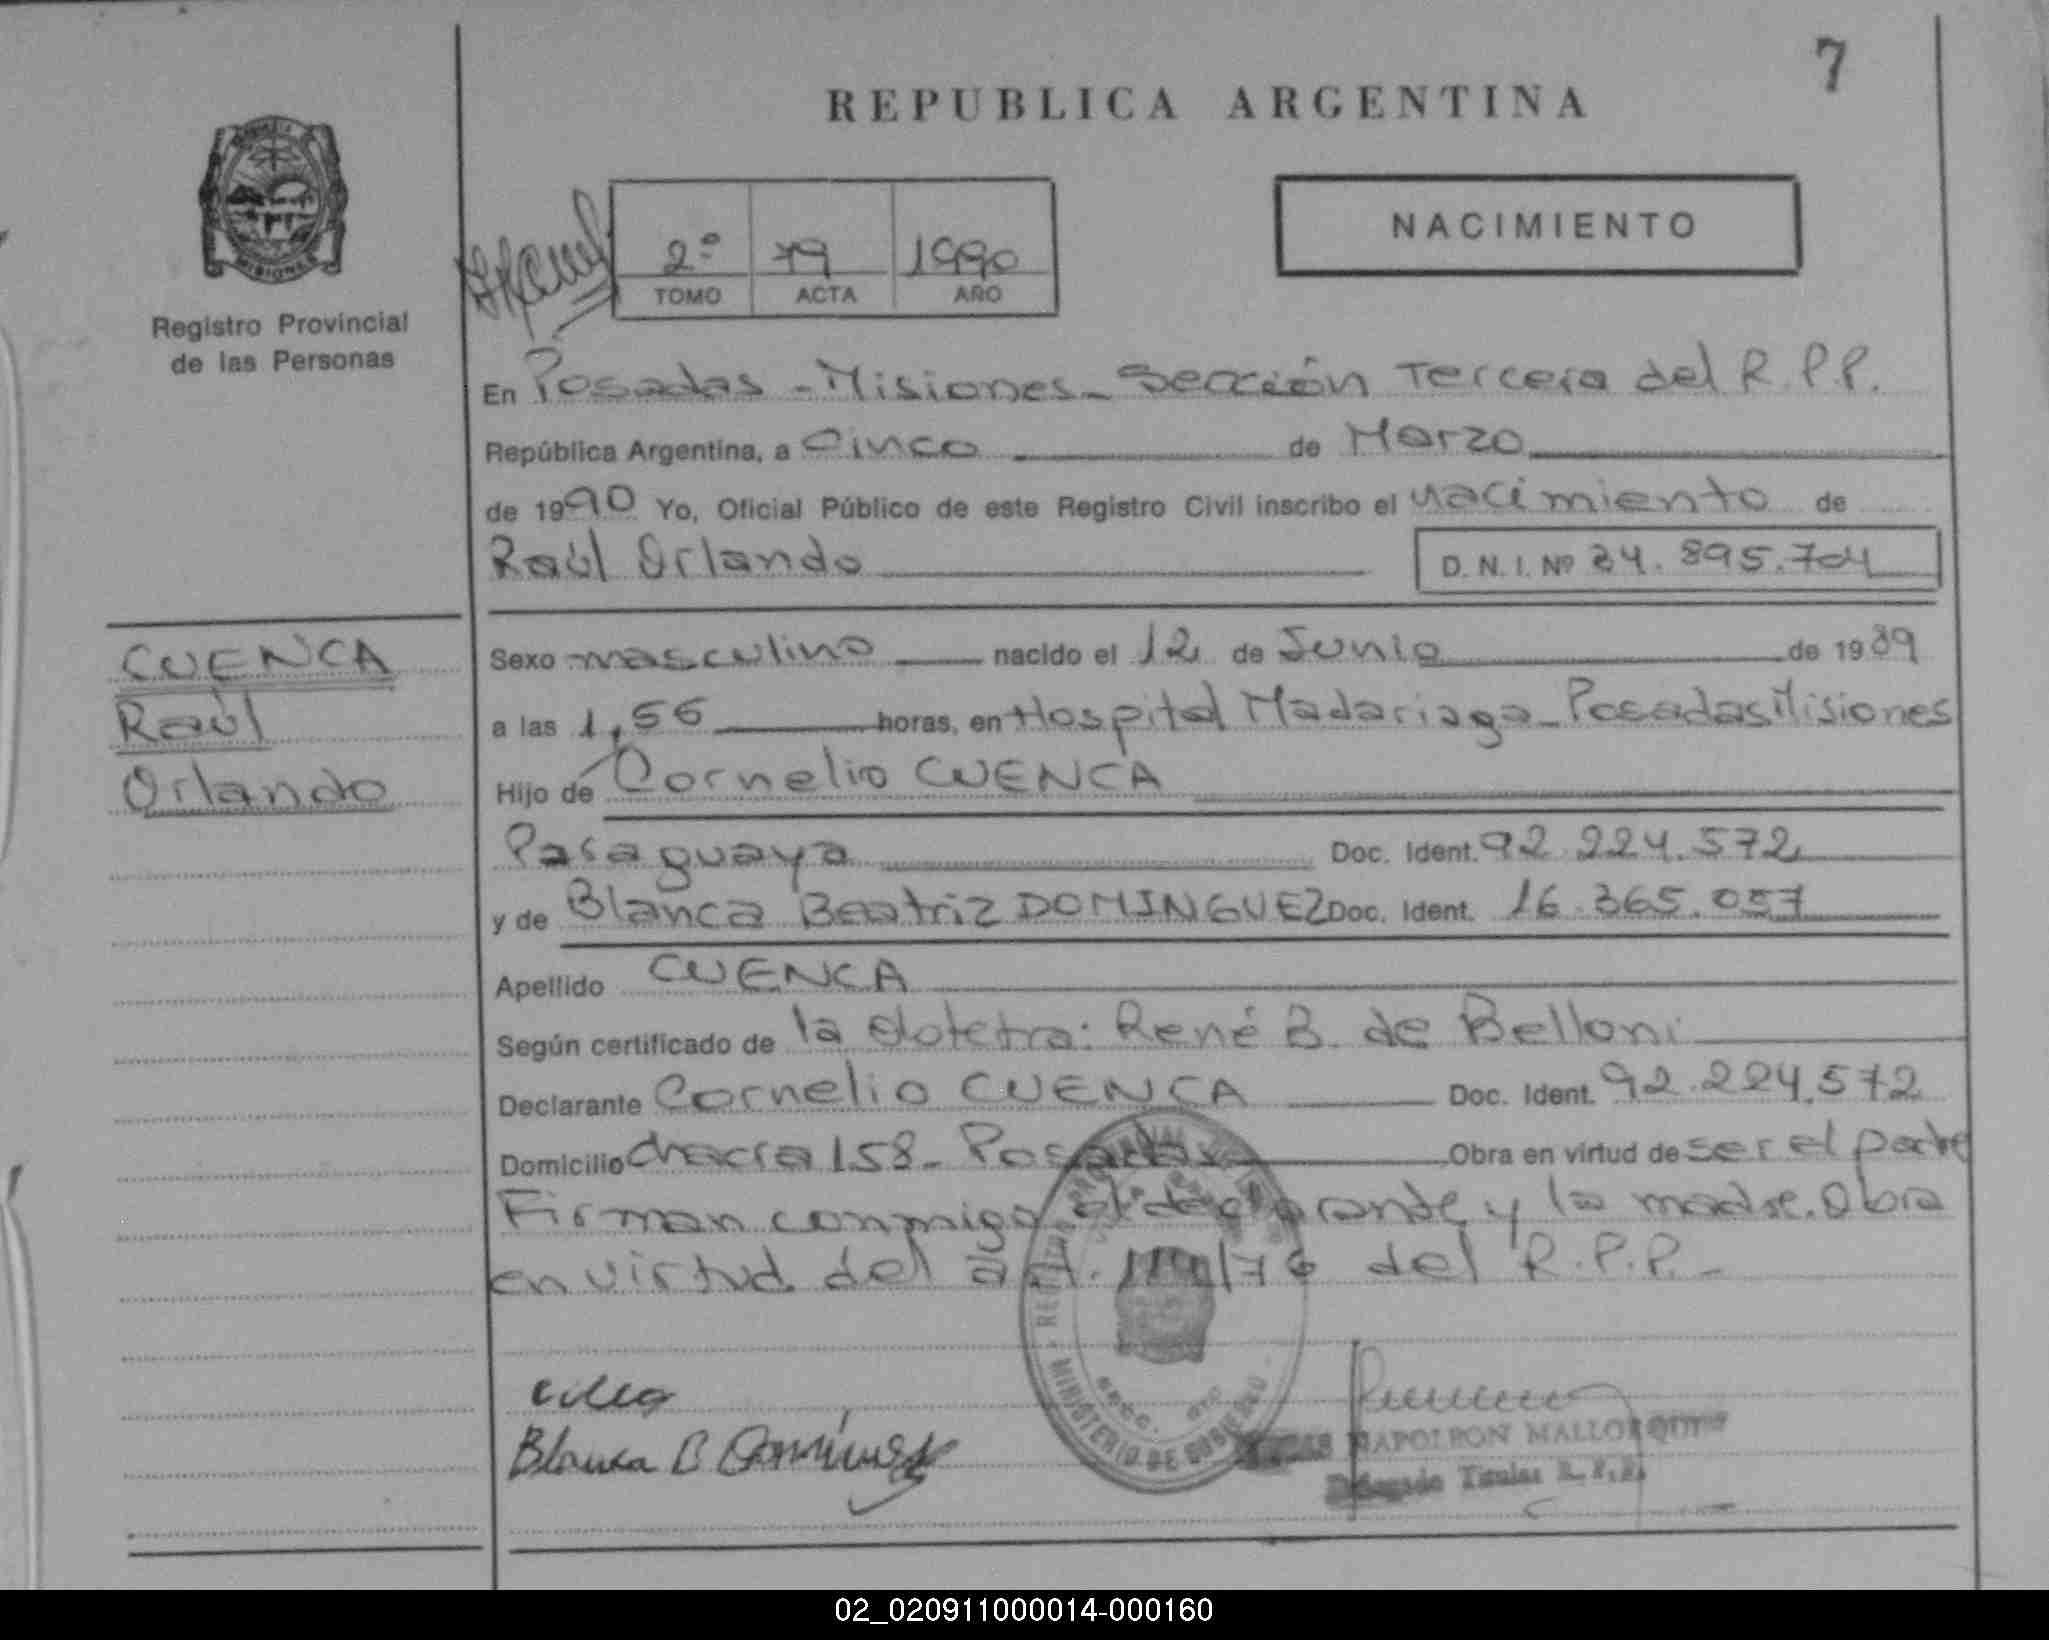 7
REPUBLICA ARGENTINA
NACIMIENTO
2º 79 1990
TOMO ACTA AÑO
MISIONES
Registro Provincial
de las Personas
En Posadas - Misiones - Sección Tercera del R.P.P.
República Argentina, a Cinco de Marzo
de 1990 Yo, Oficial Público de este Registro Civil inscribo el nacimiento de
Raúl Orlando D.N.I. Nº 34.895.704
CUENCA
Raúl
Orlando
Sexo masculino nacido el 12 de Junio de 1989
a las 1,56 horas, en Hospital Madariaga - Posadas Misiones
Hijo de Cornelio CUENCA
Paraguaya Doc. Ident. 92.224.572
y de Blanca Beatriz DOMINGUEZ Doc. Ident. 16.365.057
Apellido CUENCA
Según certificado de la obstetra: René B. de Belloni
Declarante Cornelio CUENCA Doc. Ident. 92.224.572
Domicilio chacra 158 - Posadas Obra en virtud de ser el padre
Firman conmigo el declarante y la madre. Obra
en virtud del art. /76 del R.P.P. -
MINISTERIO DE GOBIERNO
Blanca B Dominguez
NAPOLEON MALLORQUIN
Delegado Titular R.P.P.
02_020911000014-000160